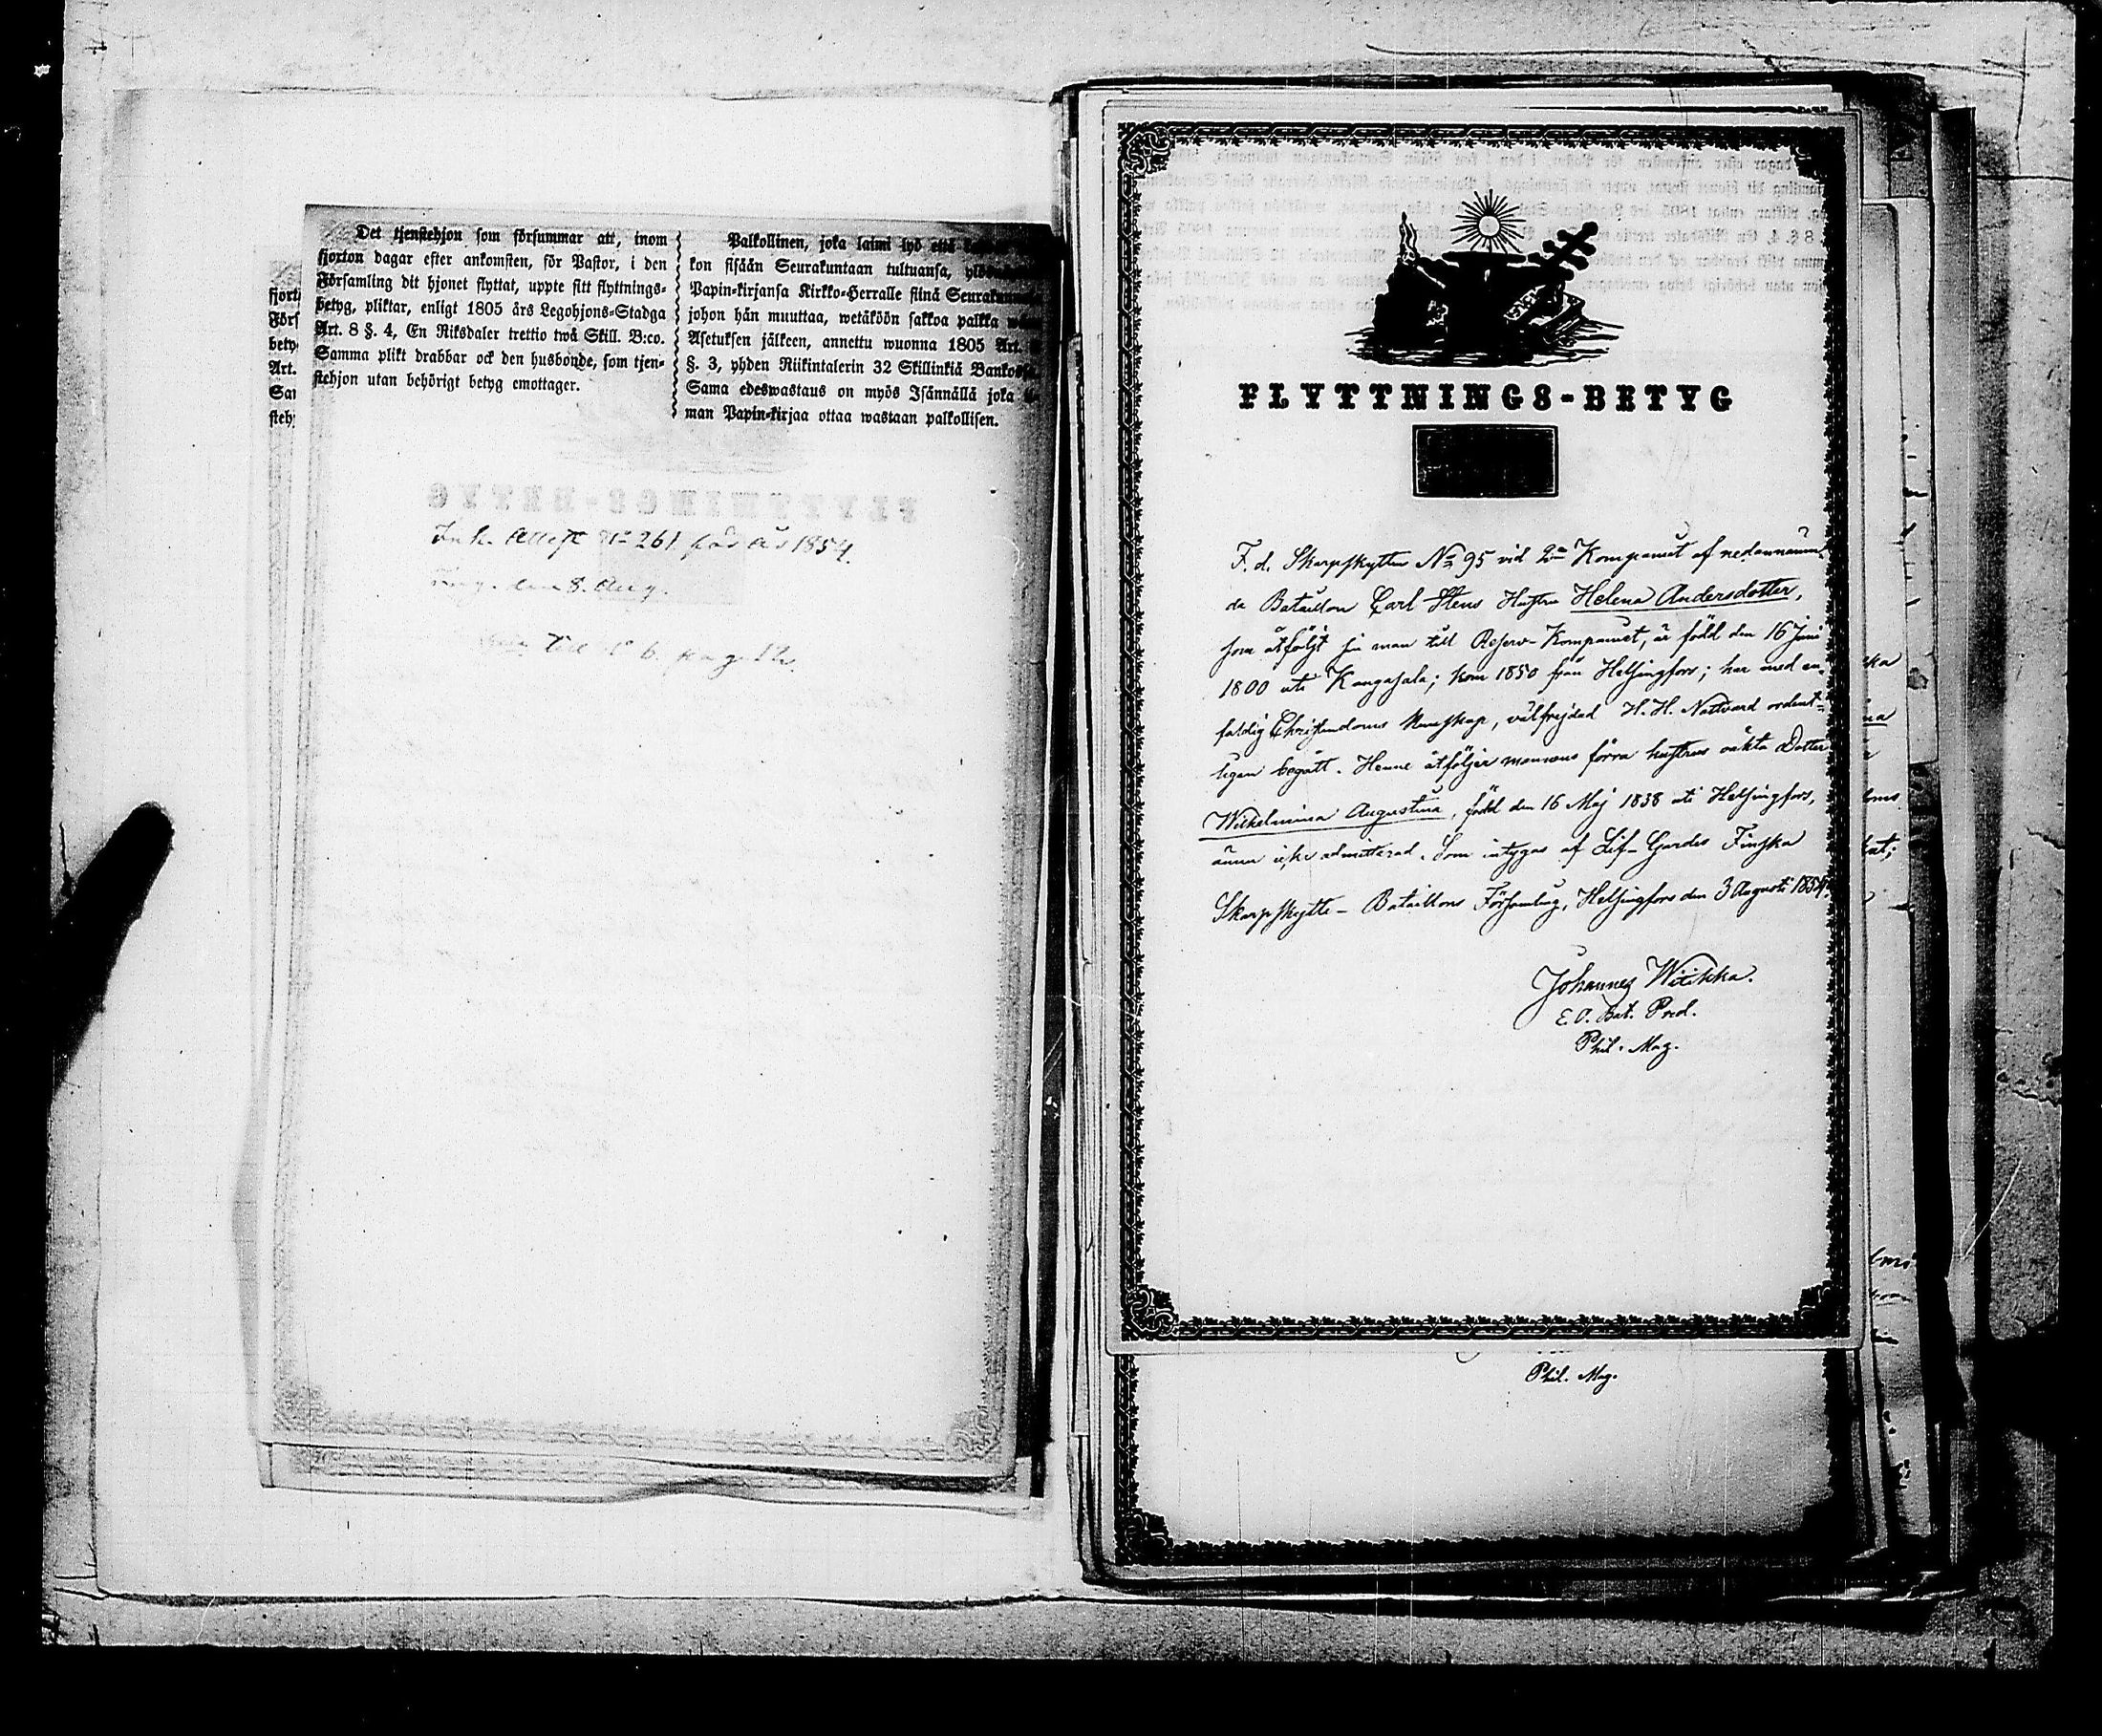 Det tjenstehjon som försummar att, inom
fjorton dagar efter ankomsten, för Pastor, i den
Församling dit hjonet flyttat, uppte sitt flyttnings-
betyg, pliktar, enligt 1805 års Legohjons-Stadga
Art. 8 §. 4, En Riksdaler trettio twå Skill. B:co.
Samma plikt drabbar ock den husbonde, som tjen-
stehjon utan behörigt betyg emottager.
Palkollinen, joka laimi lyö että
kon sisään Seurakuntaan tultuansa,
Papin-kirjansa Kirkko-Herralle siinä
johon hän muuttaa, wetäköön sakkoa palkka
Asetuksen jälkeen, annettu wuonna 1805 Art.
§. 3, yhden Riikintalerin 32 Skillinkiä
Sama edeswastaus on myös Isännällä joka
man Papin-kirjaa ottaa wastaan palkollisen.
fjort
Förs
bety
Art.
Sam
steh
Ink. Attest No 261 för år 1854.
den 8. Aug.
FLYTTNINGS-BETYG
F. d. Skarpskytten No 95 vid 2a Kompaniet af nedannämn-
da Bataillon Carl Stens Hustru Helena Andersdotter,
som åtföljt sin man till Reserv-Kompaniet, är född den 16 Juni
1800 uti Kangasala; kom 1850 från Helsingfors; har med en-
faldig Christendoms kunskap, välfrejdad H. H. Nattvard ordent-
ligen begått. Henne åtföljer mannens förra hustrus oäkta Dotter
Wilhelmina Augustina, född den 16 Maj 1838 uti Helsingfors,
ännu icke admitterad. Som intygas af Lif-Gardes Finska
Skarpskytte-Bataillons Församling, Helsingfors den 3 Augusti 1854.
Johannes Witikka.
E. O. Bat. Pred.
Phil. Mag.
Phil. Mag.